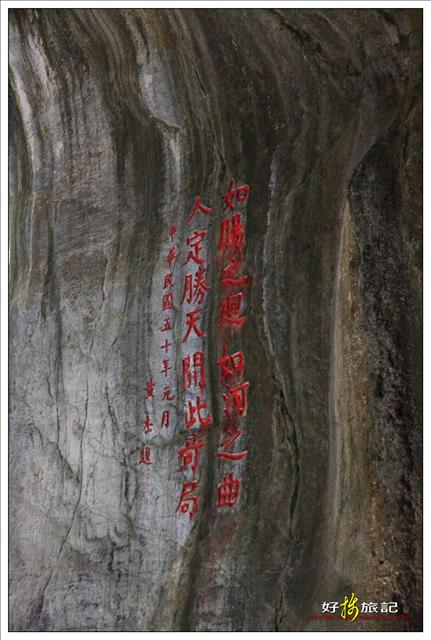 如腸之迴如河之曲
人定勝天開此奇局
中華民國五十年元月
黃杰題
好攝旅記